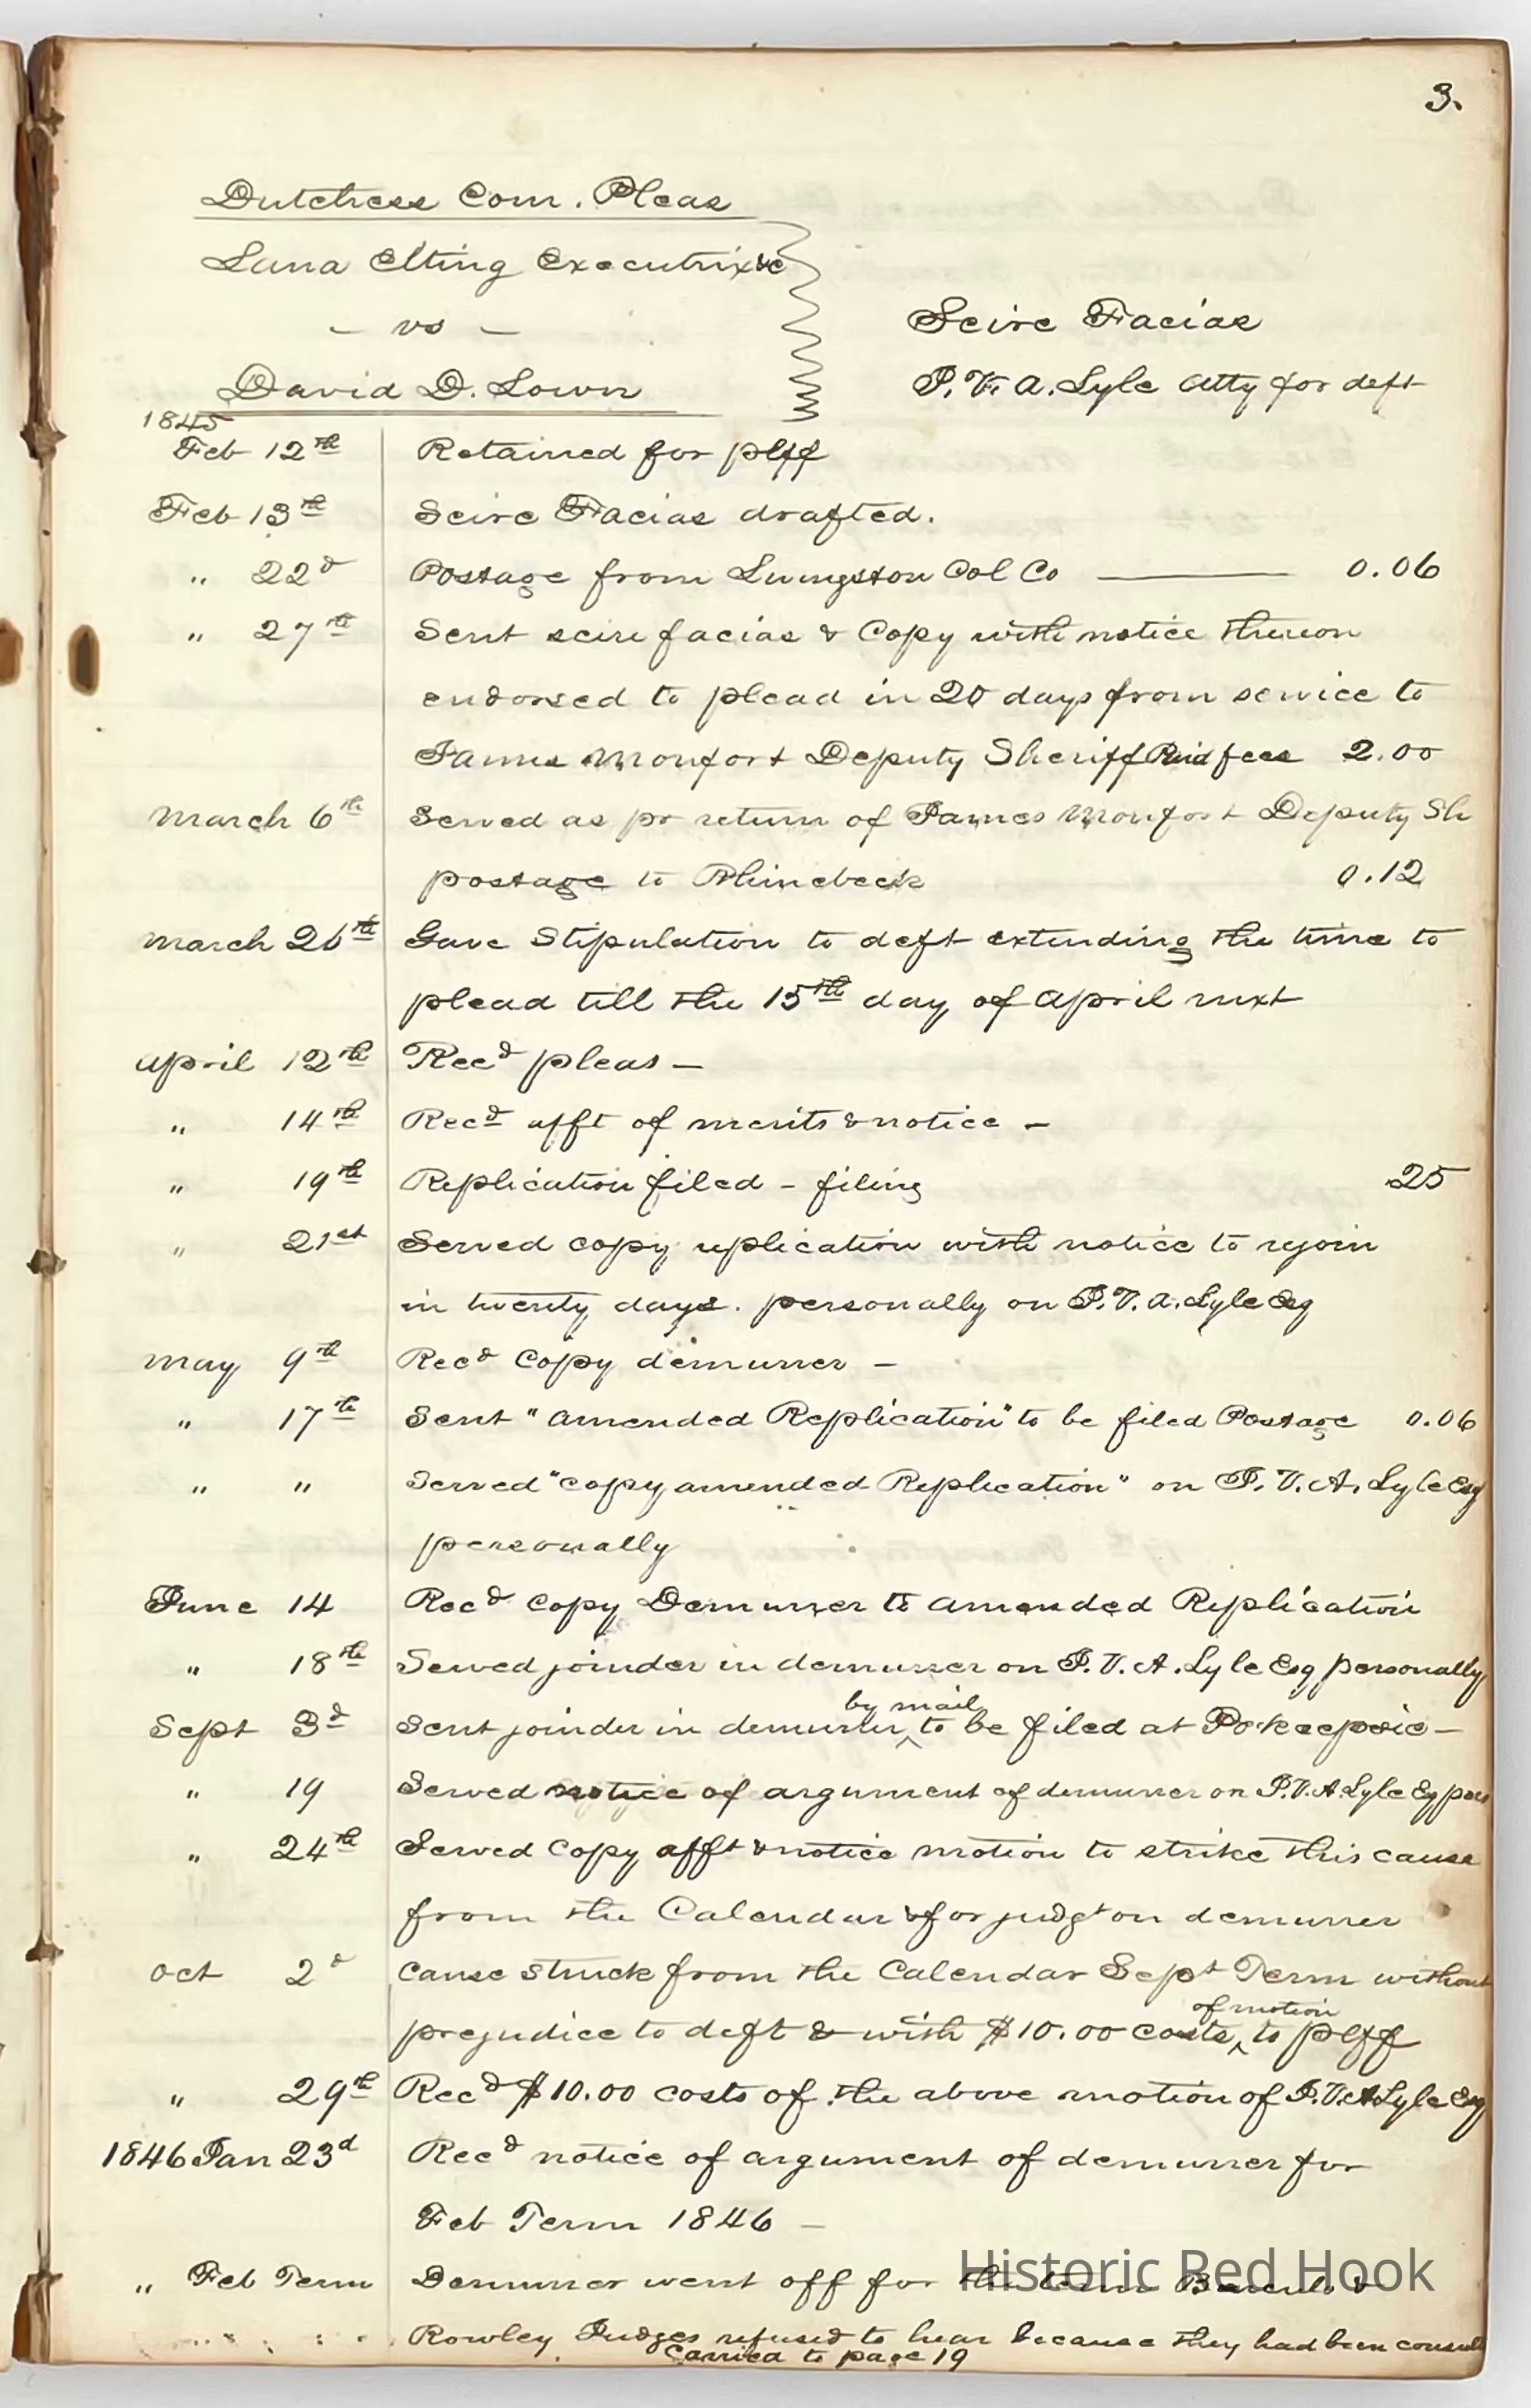 3.
Dutchess Com. Pleas
Lana Elting Executrix &c
- vs -
Scire Facias
David D. Lown
P. V. A. Lyle Atty for deft
1845
Feb 12th Retained for plff
Feb 13th Scire Facias drafted.
" 22d Postage from Livingston Col Co — 0.06
" 27th Sent scire facias & Copy with notice thereon
endorsed to plead in 20 days from service to
James Monfort Deputy Sheriff Paid fees 2.00
March 6th Served as pr return of James Monfort Deputy Sh
postage to Rhinebeck 0.12
March 26th Gave Stipulation to deft extending the time to
plead till the 15th day of April next
April 12th Recd pleas —
" 14th Recd afft of merits & notice —
" 19th Replication filed - filing .25
" 21st Served copy replication with notice to rejoin
in twenty days. personally on P. V. A. Lyle Esq
May 9th Recd Copy demurrer —
" 17th Sent "amended Replication" to be filed Postage 0.06
" " Served "copy amended Replication" on P. V. A. Lyle Esq
personally
June 14 Recd Copy Demurrer to amended Replication
" 18th Served joinder in demurrer on P. V. A. Lyle Esq personally
by mail
Sept 3d Sent joinder in demurrer ^ to be filed at Pokeepsie —
" 19 Served notice of argument of demurrer on P. V. A. Lyle Esq pers
" 24th Served Copy afft & notice motion to strike this cause
from the Calendar & for judgt on demurrer
Oct 2d Cause struck from the Calendar Sept Term without
of motion
prejudice to deft & with $10.00 costs ^ to plff
" 29th Recd $10.00 costs of the above motion of P. V. A Lyle Esq
1846 Jan 23d Recd notice of argument of demurrer for
Feb Term 1846 —
" Feb Term Demurrer went off for the term Barculo &
Historic Red Hook
Rowley Judges refused to hear because they had been counsel
Carried to page 19